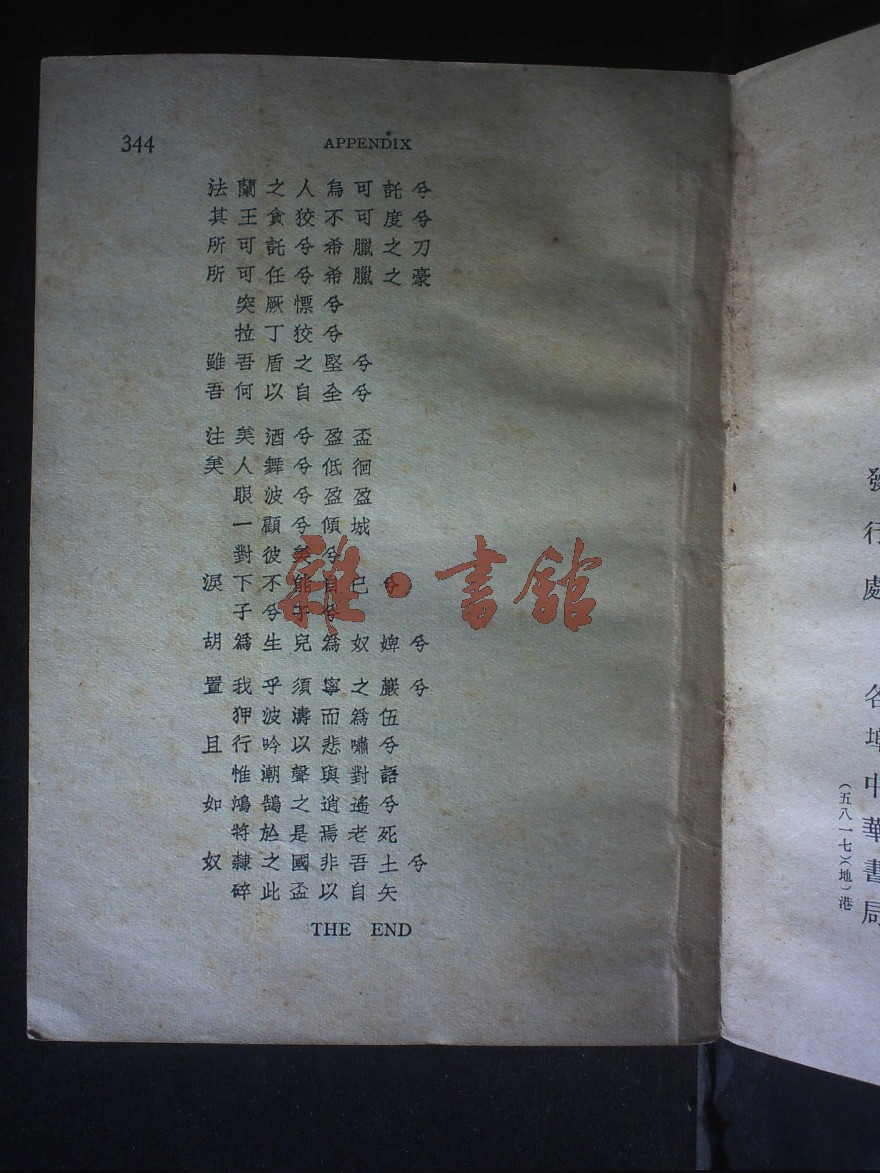 344
APPENDIX
法蘭之人烏可託兮
其王貪狡不可度兮
所可託兮希臘之刀
所可任兮希臘之豪
突厥慓兮
拉丁狡兮
雖吾盾之堅兮
吾何以自全兮
注美酒兮盈盃
美人舞兮低徊
眼波兮盈盈
一顧兮傾城
對彼美兮
淚下不能自已兮
子兮子兮
胡爲生兒爲奴婢兮
置我乎須寧之巖兮
狎波濤而爲伍
且行吟以悲嘯兮
惟潮聲與對語
如鴻鵠之逍遙兮
將於是焉老死
奴隸之國非吾土兮
碎此盃以自矢
THE END
雜·書館
發行處 各埠中華書局
(五八一七)(地)港